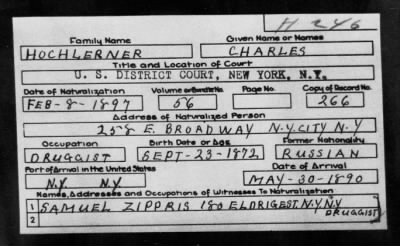 H 246
Family Name Given Name or Names
HOCHLERNER CHARLES
Title and Location of Court
U. S. DISTRICT COURT, NEW YORK, N.Y.
Date of Naturalization Volume or Bundle No. Page No. Copy of Record No.
FEB-8-1897 56 266
Address of Naturalized Person
258 E. BROADWAY N.Y.CITY N.Y
Occupation Birth Date or Age Former Nationality
DRUGGIST SEPT-23-1872 RUSSIAN
Port of Arrival in the United States Date of Arrival
N.Y. N.Y MAY-30-1890
Names, Addresses and Occupations of Witnesses To Naturalization
1 SAMUEL ZIPPRIS 180 ELDRIGEST. N.Y N.Y
DRUGGIST
2